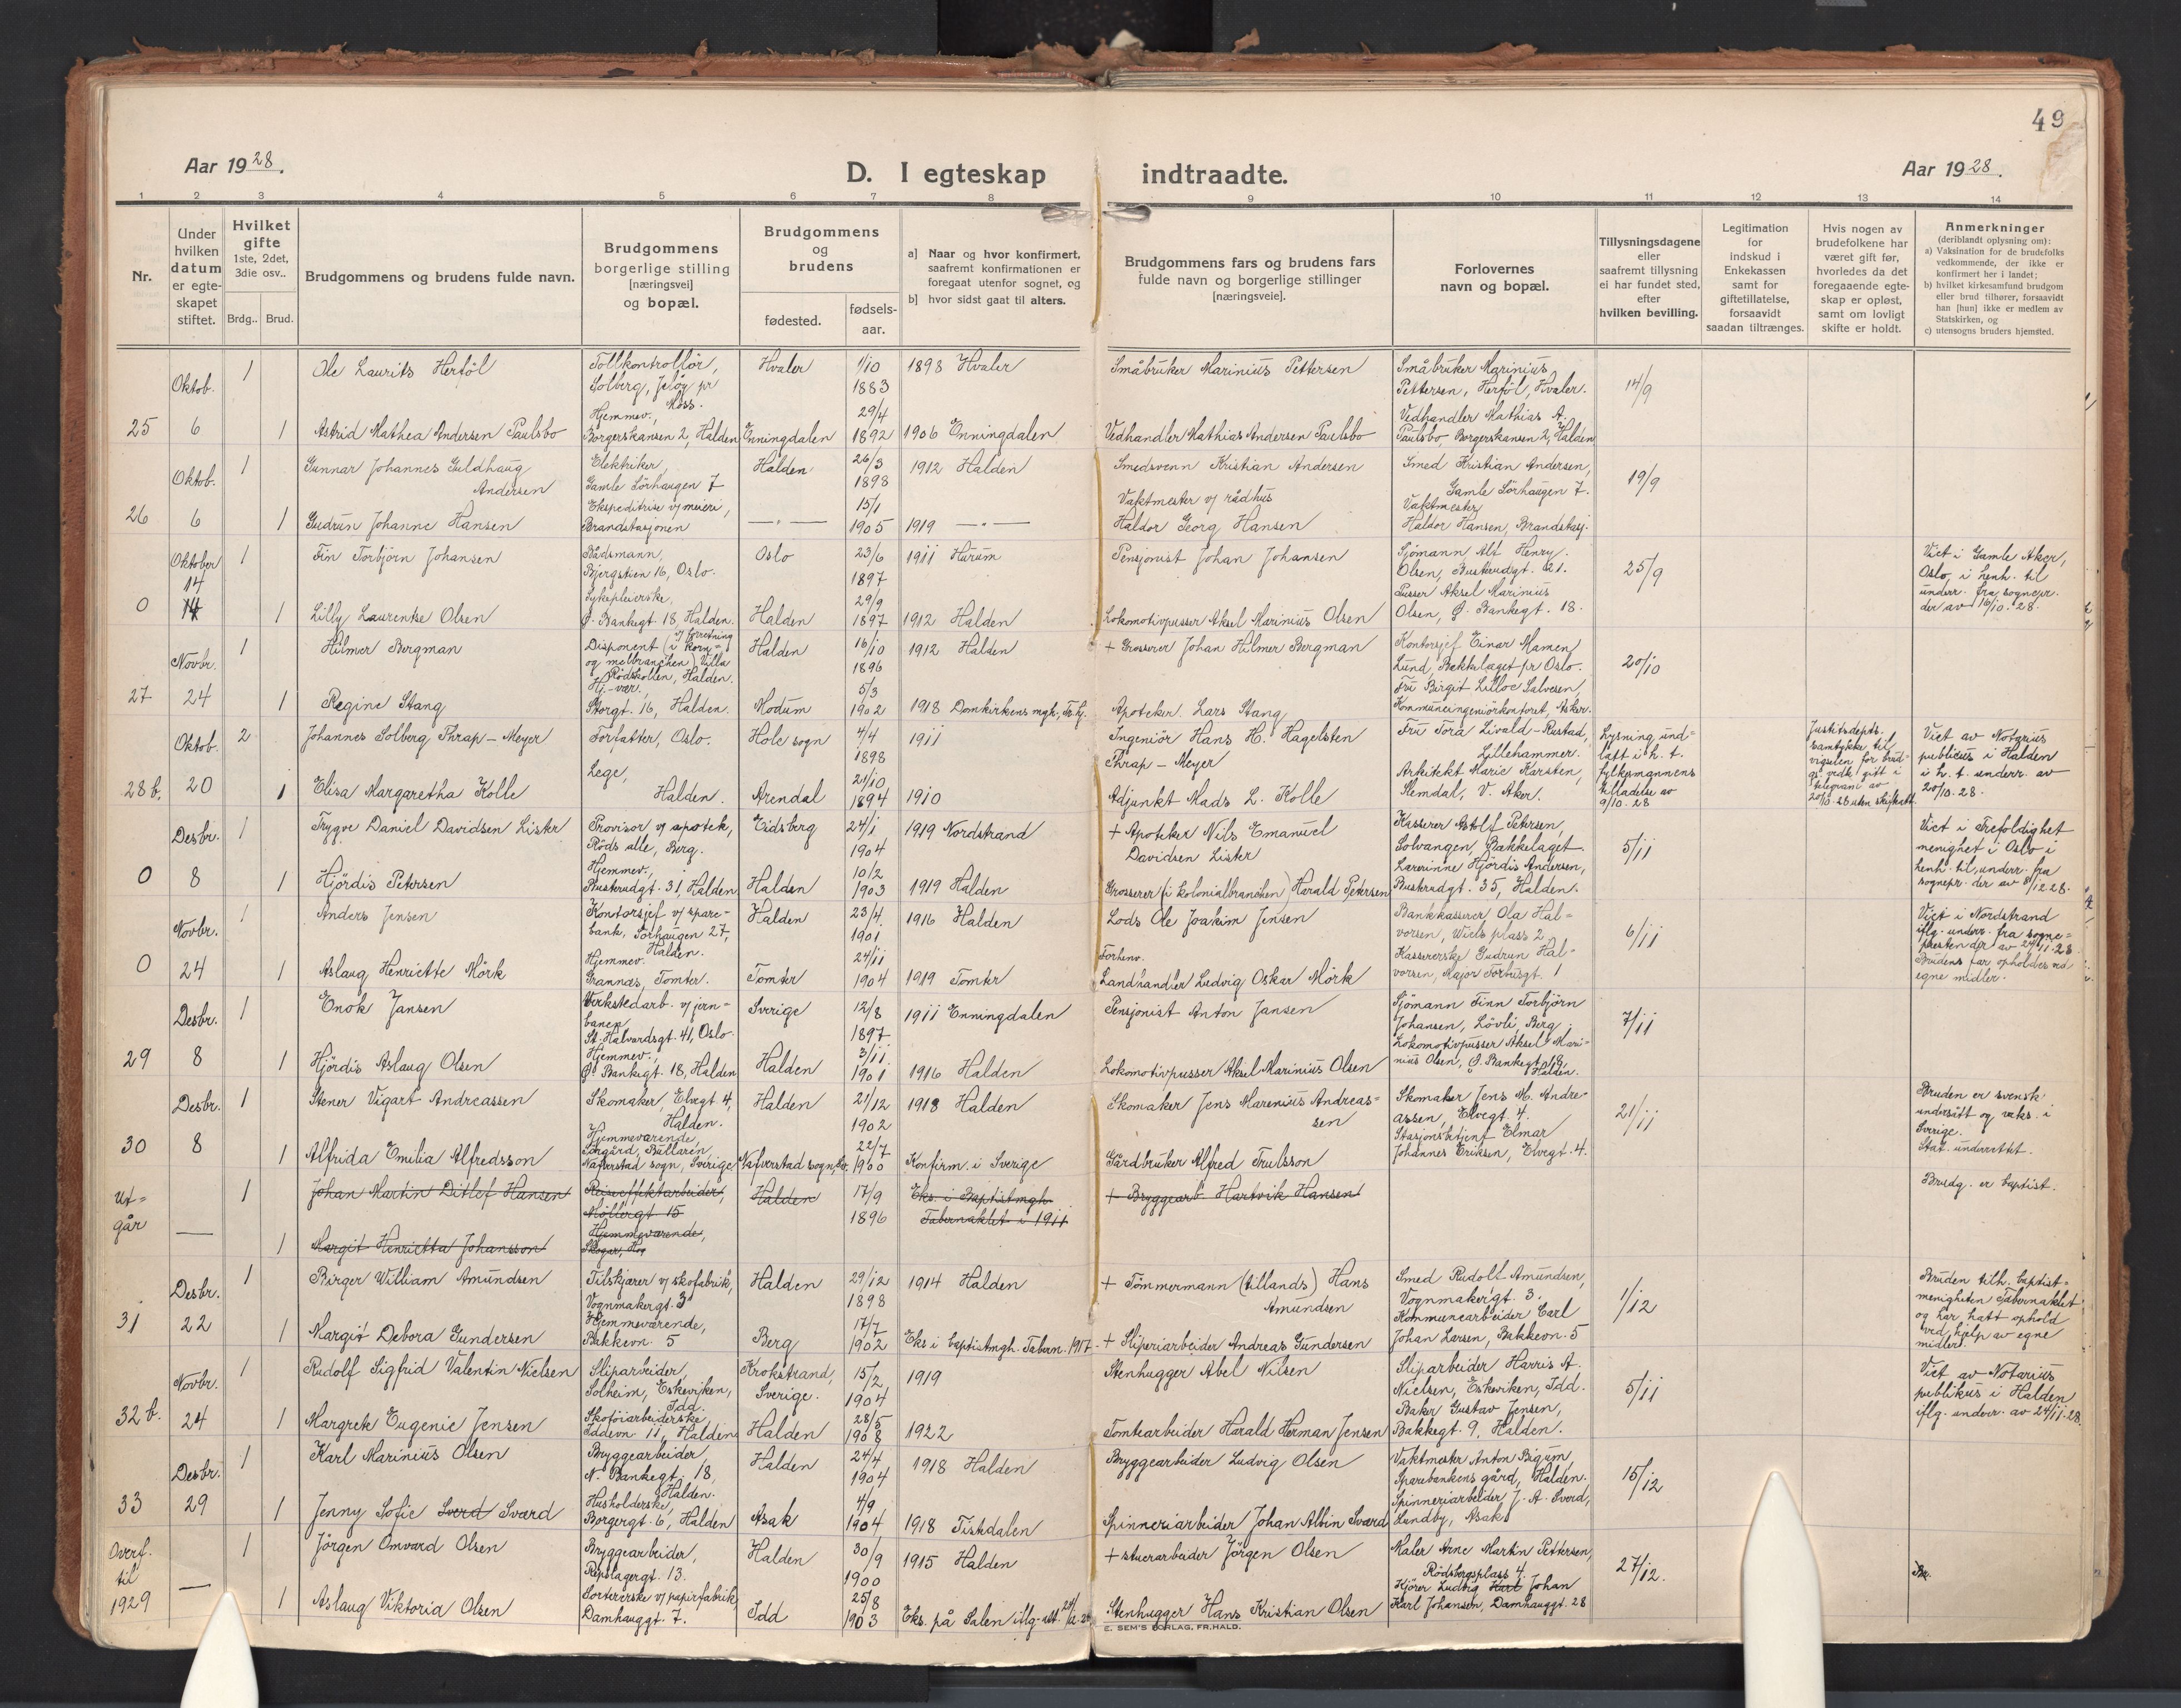 49
Aar 1928.
D. I egteskap indtraadte.
Aar 1928.
1 2 3 4 5 6 7 8 9 10 11 12 13 14
Nr.
Under hvilken datum er egte-skapet stiftet.
Hvilket gifte 1ste, 2det, 3die osv..
Brdg.. Brud.
Brudgommens og brudens fulde navn.
Brudgommens borgerlige stilling [næringsvei] og bopæl.
Brudgommens og brudens
fødested.
fødsels-aar.
a] Naar og hvor konfirmert, saafremt konfirmationen er foregaat utenfor sognet, og
b] hvor sidst gaat til alters.
Brudgommens fars og brudens fars fulde navn og borgerlige stillinger [næringsveie].
Forlovernes navn og bopæl.
Tillysningsdagene eller saafremt tillysning ei har fundet sted, efter hvilken bevilling.
Legitimation for indskud i Enkekassen samt for giftetillatelse, forsaavidt saadan tiltrænges.
Hvis nogen av brudefolkene har været gift før, hvorledes da det foregaaende egte-skap er opløst, samt om lovligt skifte er holdt.
Anmerkninger (deriblandt oplysning om):
a) Vaksination for de brudefolks vedkommende, der ikke er konfirmert her i landet;
b) hvilket kirkesamfund brudgom eller brud tilhører, forsaavidt han [hun] ikke er medlem av Statskirken, og
c) utensogns bruders hjemsted.
Oktob. 1 Ole Laurits Herföl Tollkontrollör, Solberg, Jelöy pr Moss. Hvaler 1/10 1883 1898 Hvaler Småbruker Marinius Pettersen Småbruker Marinius Pettersen, Herföl, Hvaler. 14/9
25 6 1 Astrid Mathea Andersen Paulsbo Hjemmev., Borgerskansen 2, Halden Enningdalen 29/4 1892 1906 Enningdalen Vedhandler Mathias Andersen Paulsbo Vedhandler Mathias A. Paulsbo, Borgerskansen 2, Halden
Oktob. 1 Gunnar Johannes Guldhaug Andersen Elektriker, Gamle Sörhaugen 7 Halden 26/3 1898 1912 Halden Smedsvenn Kristian Andersen Smed Kristian Andersen, Gamle Sörhaugen 7. 19/9
26 6 1 Gudrun Johanne Hansen Ekspeditrise v/ meieri, Brandstasjonen —"— 15/1 1905 1919 —"— Vaktmester v/ rådhus Haldor Georg Hansen Vaktmester Haldor Hansen, Brandstasj.
Oktober 14 1 Fin Torbjörn Johansen Bådsmann, Bjergstien 16, Oslo. Oslo 23/6 1897 1911 Hurum Pensjonist Johan Johansen Sjömann Alf Henry Olsen, Busterudgt. 21. 25/9 Viet i Gamle Aker, Oslo, i henh. til underr. fra sognepr. der av 16/10. 28.
0 14 1 Lilly Laurentse Olsen Sykepleierske. Ø. Bankegt 18, Halden. Halden 29/9 1897 1912 Halden Lokomotivpusser Aksel Marinius Olsen Pusser Aksel Marinius Olsen, Ø. Bankegt. 18.
Novbr. 1 Hilmer Bergman Disponent (v/ forretning i korn- og melbranchen) Villa Rödskollen, Halden. Halden 16/10 1896 1912 Halden + Grosserer Johan Hilmer Bergman Kontorsjef Einar Mamen Lund, Bekkelaget pr Oslo. 20/10
27 24 1 Regine Stang Hj.-vær., Storgt. 16, Halden. Modum 5/3 1902 1918 Domkirkens mgh, Tr.hj. Apoteker Lars Stang Fru Birgit Lilloe Salvesen, Kommuneingeniörkontoret, Asker.
Oktob. 2 Johannes Solberg Thrap-Meyer Forfatter, Oslo. Hole sogn 4/4 1898 1911 Ingeniör Hans H. Hagelsten Thrap-Meyer Fru Tora Livald-Rustad, Lillehammer. Lysning und-latt i h. t. fylkesmannens tilladelse av 9/10. 28 Justitsdepts. samtykke til vigselen for brudg. vedk. gitt i telegram av 20/10. 28 uten Viet av Notarius publicus i Halden i h. t. underr. av 20/10. 28.
28 b. 20 1 Elisa Margaretha Kolle Lege, Halden. Arendal 21/10 1894 1910 Adjunkt Mads L. Kolle Arkitekt Marie Karsten, Slemdal, V. Aker.
Desbr. 1 Trygve Daniel Davidsen Lister Provisor v/ apotek, Röds alle, Berg. Eidsberg 24/1 1904 1919 Nordstrand + Apoteker Nils Emanuel Davidsen Lister Kasserer Astolf Petersen, Solvangen, Bækkelaget. 5/11 Viet i Trefoldighet menighet i Oslo i henh. til underr. fra sognepr. der av 8/12 28.
0 8 1 Hjördis Petersen Hjemmev., Busterudgt. 31, Halden. Halden 10/2 1903 1919 Halden Grosserer (i kolonialbranchen) Harald Petersen Lærerinne Hjördis Andersen, Busterudgt. 35, Halden.
Novbr. 1 Anders Jensen Kontorsjef v/ spare-bank, Sörhaugen 27, Halden. Halden 23/4 1901 1916 Halden Lods Ole Joakim Jensen Bankkasserer Ola Hal-vorsen, Wiels plass 2, 6/11 Viet i Nordstrand iflg. underr. fra sogne-presten der av 24/11. 28. Brudens far opholdes ved egne midler.
0 24 1 Aslaug Henriette Mörk Hjemmev. Grannæs, Tomter. Tomter 24/11 1904 1919 Tomter Forhenv. Landhandler Ludvig Oskar Mörk Kassererske Gudrun Hal-vorsen, Major Forbusgt. 1
Desbr. 1 Enok Jansen Verkstedarb. v/ jern-banen, St. Halvardsgt. 41, Oslo. Sverige 12/8 1897 1911 Enningdalen Pensjonist Anton Jansen Sjömann Finn Torbjörn Johansen, Lövli, Berg. 7/11
29 8 1 Hjördis Aslaug Olsen Hjemmev., Ø. Bankegt. 18, Halden Halden 3/11 1901 1916 Halden Lokomotivpusser Aksel Marinius Olsen Lokomotivpusser Aksel Mari-nius Olsen, Ø. Bankegt 18, Halden.
Desbr. 1 Stener Vigart Andreassen Skomaker, Elvegt. 4, Halden. Halden 21/12 1902 1918 Halden Skomaker Jens Marenius Andreas-sen Skomaker Jens M. Andre-assen, Elvegt. 4. 21/11 Bruden er svensk undersått og vaks. i Sverige. Stat. underrettet.
30 8 1 Alfrida Emilia Alfredsson Hjemmeværende, Bullaren, Naverstad sogn, Sverige Naverstad sogn, Sv. 22/7 1900 Konfirm. i Sverige Gårdbruker Alfred Trulsson Stasjonsbetjent Elmar Johannes Eriksen, Elvegt. 4.
Ut-går 1 Johan Martin Ditlef Hansen Reiseeffektarbeider, Möllergt 15 Halden 17/9 1896 Eks. i Baptistmgh. Tabernaklet i 1911 + Bryggearb. Hartvik Hansen Brudg. er baptist.
— 1 Margit Henrietta Johansson Hjemmeværende, Skogar,
Desbr. 1 Birger William Amundsen Tilskjærer v/ skofabrik, Vognmakergt. 3 Halden 29/12 1898 1914 Halden + Tömmermann (tillands) Hans Amundsen Smed Rudolf Amundsen, Vognmakergt. 3. 1/12 Bruden tilh. baptist-menigheten Tabernaklet og har hatt ophold ved hjelp av egne midler.
31 22 1 Margit Debora Gundersen Hjemmeværende, Bakkevn. 5 Berg 17/7 1902 Eks i baptistmgh. Tabern. 1917. + Sliperiarbeider Andreas Gundersen Kommunearbeider Carl Johan Larsen, Bakkevn. 5
Novbr. 1 Rudolf Sigfrid Valentin Nielsen Sliparbeider, Solheim, Eskeviken, Idd. Krokstrand, Sverige. 15/2 1904 1919 Stenhugger Abel Nilsen Sliparbeider Harris A. Nielsen, Eskeviken, Idd. 5/11 Viet av Notarius publikus i Halden iflg. underr. av 24/11. 28.
32 b. 24 1 Margrete Eugenie Jensen Skotöiarbeiderske Iddevn. 11, Halden Halden 28/5 1908 1922 Tomtearbeider Harald Herman Jensen Baker Gustav Jensen, Bakkegt. 9, Halden.
Desbr. 1 Karl Marinius Olsen Bryggearbeider N. Bankegt. 18, Halden. Halden 24/4 1904 1918 Halden Bryggearbeider Ludvig Olsen Vaktmester Anton Bigum, Sparebankens gård, Halden. 15/12
33 29 1 Jenny Sofie Sverd Sværd Husholderske, Borgergt. 6, Halden Asak 4/9 1904 1918 Tistedalen Spinneriarbeider Johan Albin Sværd Spinneriarbeider J. A. Sverd, Lundby, Asak
Overf. til 1929 1 Jörgen Omvard Olsen Bryggearbeider, Repslagergt. 13. Halden 30/9 1900 1915 Halden + stuerarbeider Jörgen Olsen Maler Arne Martin Pettersen, Rödsbergsplass 4. 27/12.
— 1 Aslaug Viktoria Olsen Sortererske v/ papirfabrik Damhauggt. 7. Idd 25/8 1903 Eks. på Salen iflg. att. Stenhugger Hans Kristian Olsen Kjörer Ludvig Karl Johan Karl Johansen, Damhauggt. 28
E. SEM'S FORLAG, FR.HALD.